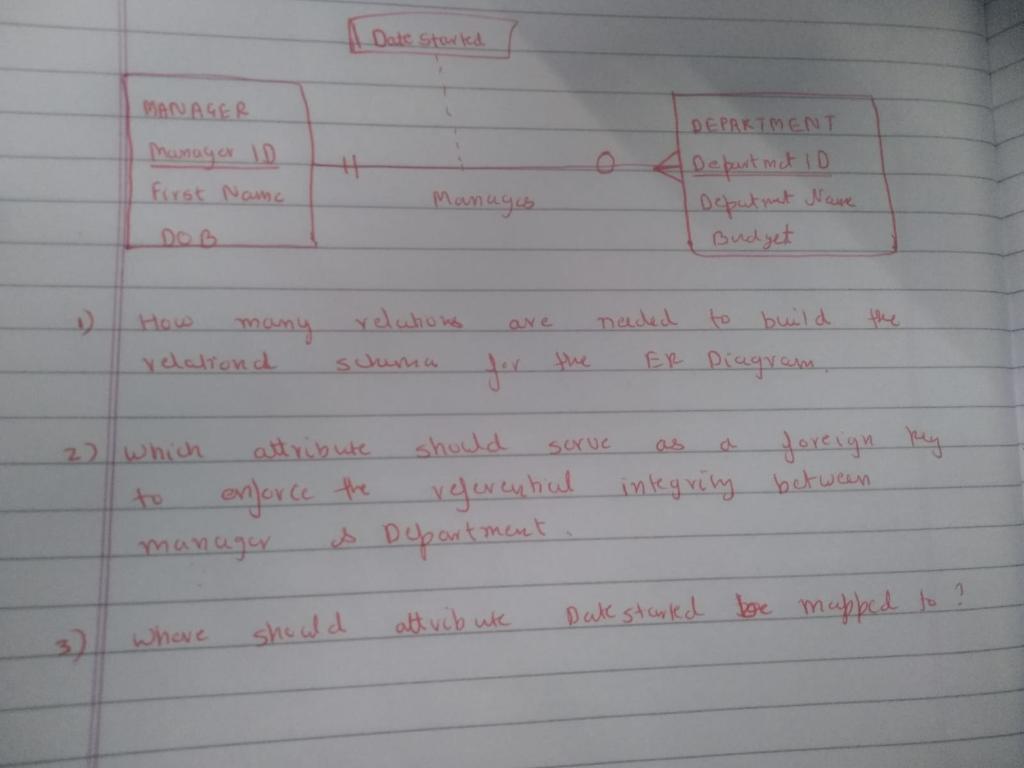 Date started
MANAGER
Manager ID
First Name
DOB
Manages
DEPARTMENT
Departmet ID
Department Name
Budget
1) How many relations are needed to build the
relational schema for the ER Diagram.
2) Which attribute should serve as a foreign key
to enforce the referential integrity between
manager & Department.
3) Where should attribute Date started be mapped to?